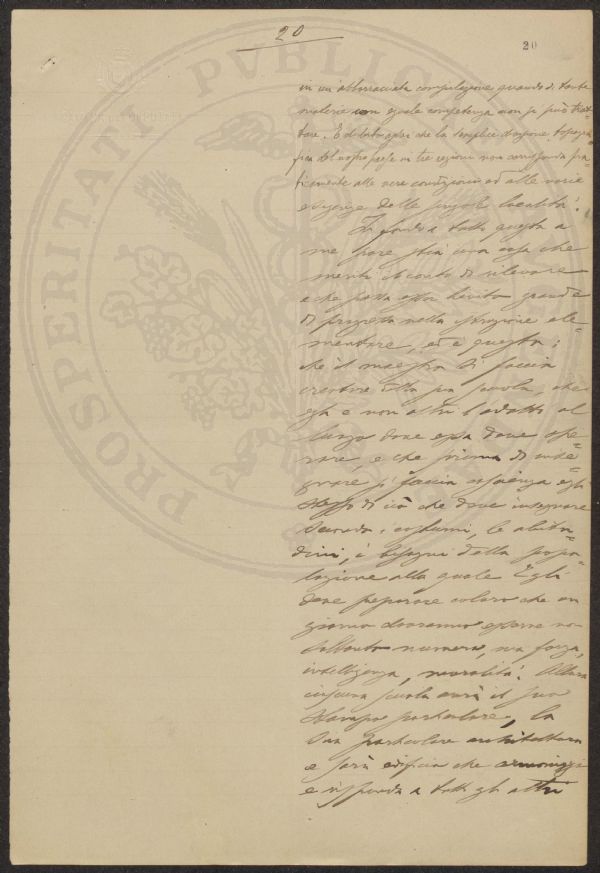 20
20
PROSPERITATI PVBLICAE
in un'abborracciata compilazione, quando di tante
materie con eguale competenza non si può trat=
tare. E di tutto questo che la semplice divisione topogra=
fica del nostro paese in tre regioni non corrisponda pra=
ticamente alle vere condizioni ed alle varie
esigenze delle singole località.
In fondo a tutto questo a
me pare stia una cosa che
meriti il conto di rilevare
e che possa esser lievito grande
di progresso nella istruzione ele=
mentare, ed è questa:
che il maestro si faccia
creatore della sua scuola, che
egli e non altri l'adatti al
luogo dove essa deve ope=
rare, e che prima di inse=
gnare si faccia coscienza egli
stesso di ciò che deve insegnare
secondo i costumi, le abitu=
dini, i bisogni della popo=
lazione alla quale Egli
deve preparare coloro che un
giorno dovranno essere non
soltanto numero, ma forza,
intelligenza, moralità. Allora
ciascuna scuola avrà il suo
stampo particolare, la
sua particolare architettura
e sarà edificio che armonizzi
e risponda a tutti gli altri